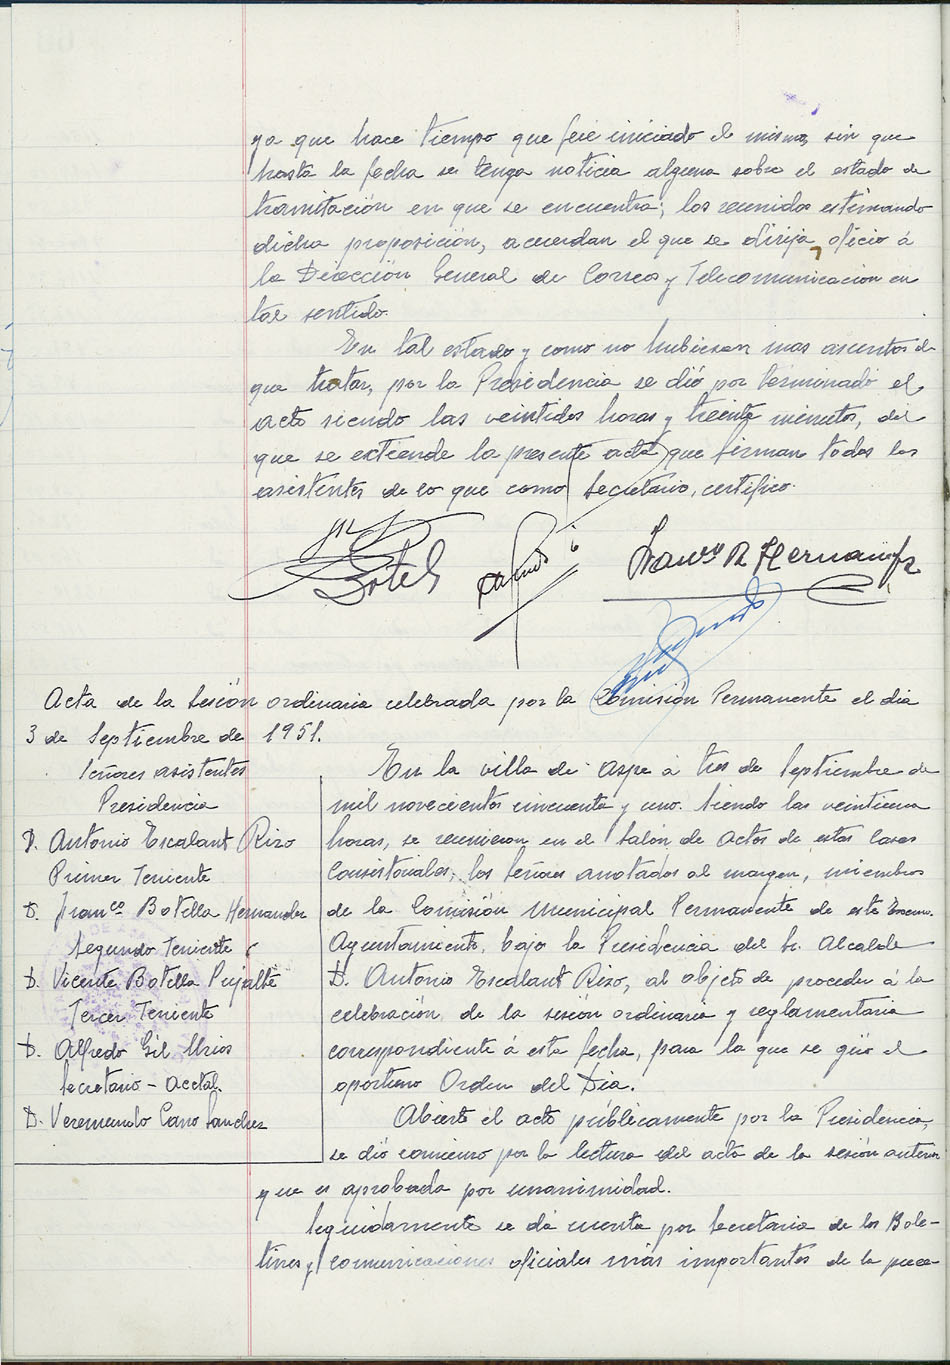 ya que hace tiempo que fué iniciado el mismo, sin que
hasta la fecha se tenga noticia alguna sobre el estado de
tramitación en que se encuentra; los reunidos estimando
dicha proposición, acuerdan el que se dirija oficio á
la Dirección General de Correos y Telecomunicacion en
tal sentido.
En tal estado y como no hubiesen mas asuntos de
que tratar, por la Presidencia se dió por terminado el
acto siendo las veintidos horas y treinta minutos, del
que se extiende la presente acta que firman todos los
asistentes de lo que como Secretario, certifico.
Botella
Franco B Hernandez
Acta de la Sesión ordinaria celebrada por la Comisión Permanente el dia
3 de Septiembre de 1951.
Señores asistentes
Presidencia
D. Antonio Escalant Rizo
Primer Teniente
D. Franco Botella Hernandez
Segundo Teniente
D. Vicente Botella Pujalte
Tercer Teniente
D. Alfredo Gil Mrios
Secretario - Acctal.
D. Veremundo Cano Sanchez
En la villa de Aspe á tres de Septiembre de
mil novecientos cincuenta y uno. Siendo las veintiuna
horas, se reunieron en el Salón de actos de estas Casas
Consistoriales, los Señores anotados al margen, miembros
de la Comisión Municipal Permanente de este Excmo.
Ayuntamiento, bajo la Presidencia del Sr. Alcalde
D. Antonio Escalant Rizo, al objeto de proceder á la
celebración de la sesión ordinaria y reglamentaria
correspondiente á esta fecha, para la que se giró el
oportuno Orden del Dia.
Abierto el acto públicamente por la Presidencia,
se dió comienzo por la lectura del acta de la sesión anterior
que es aprobada por unanimidad.
Seguidamente se dá cuenta por Secretaria de los Bole-
tines y comunicaciones oficiales más importantes de la prece-